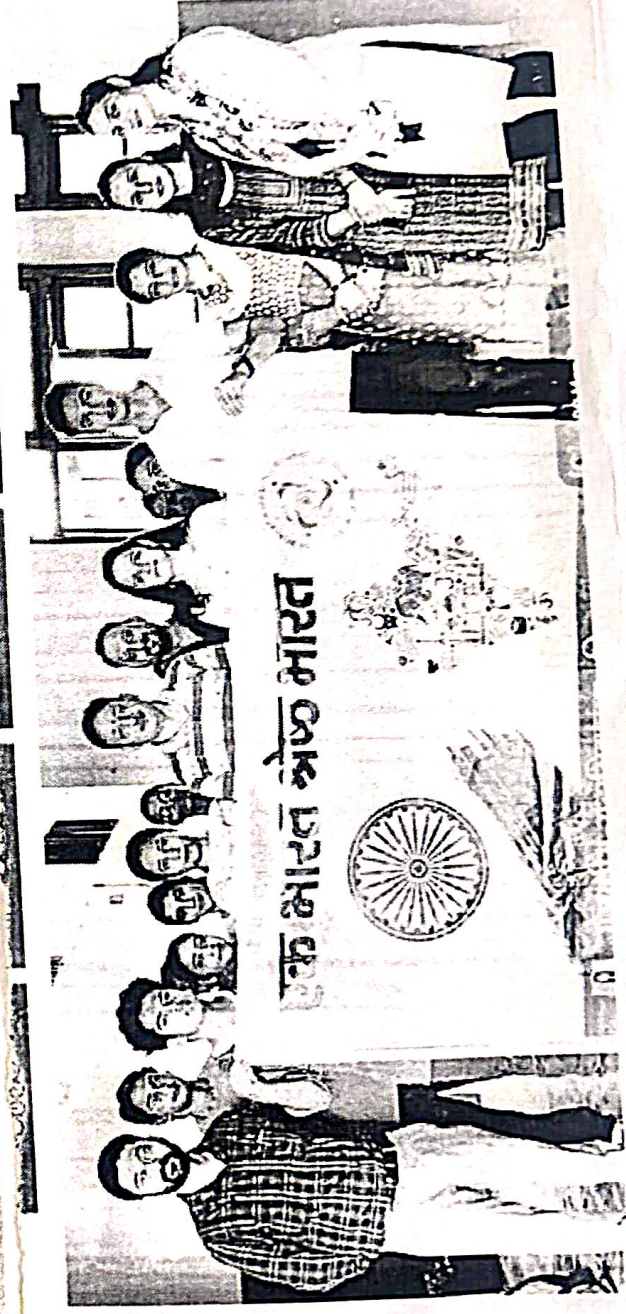 एक भारत श्रेष्ठ भारत